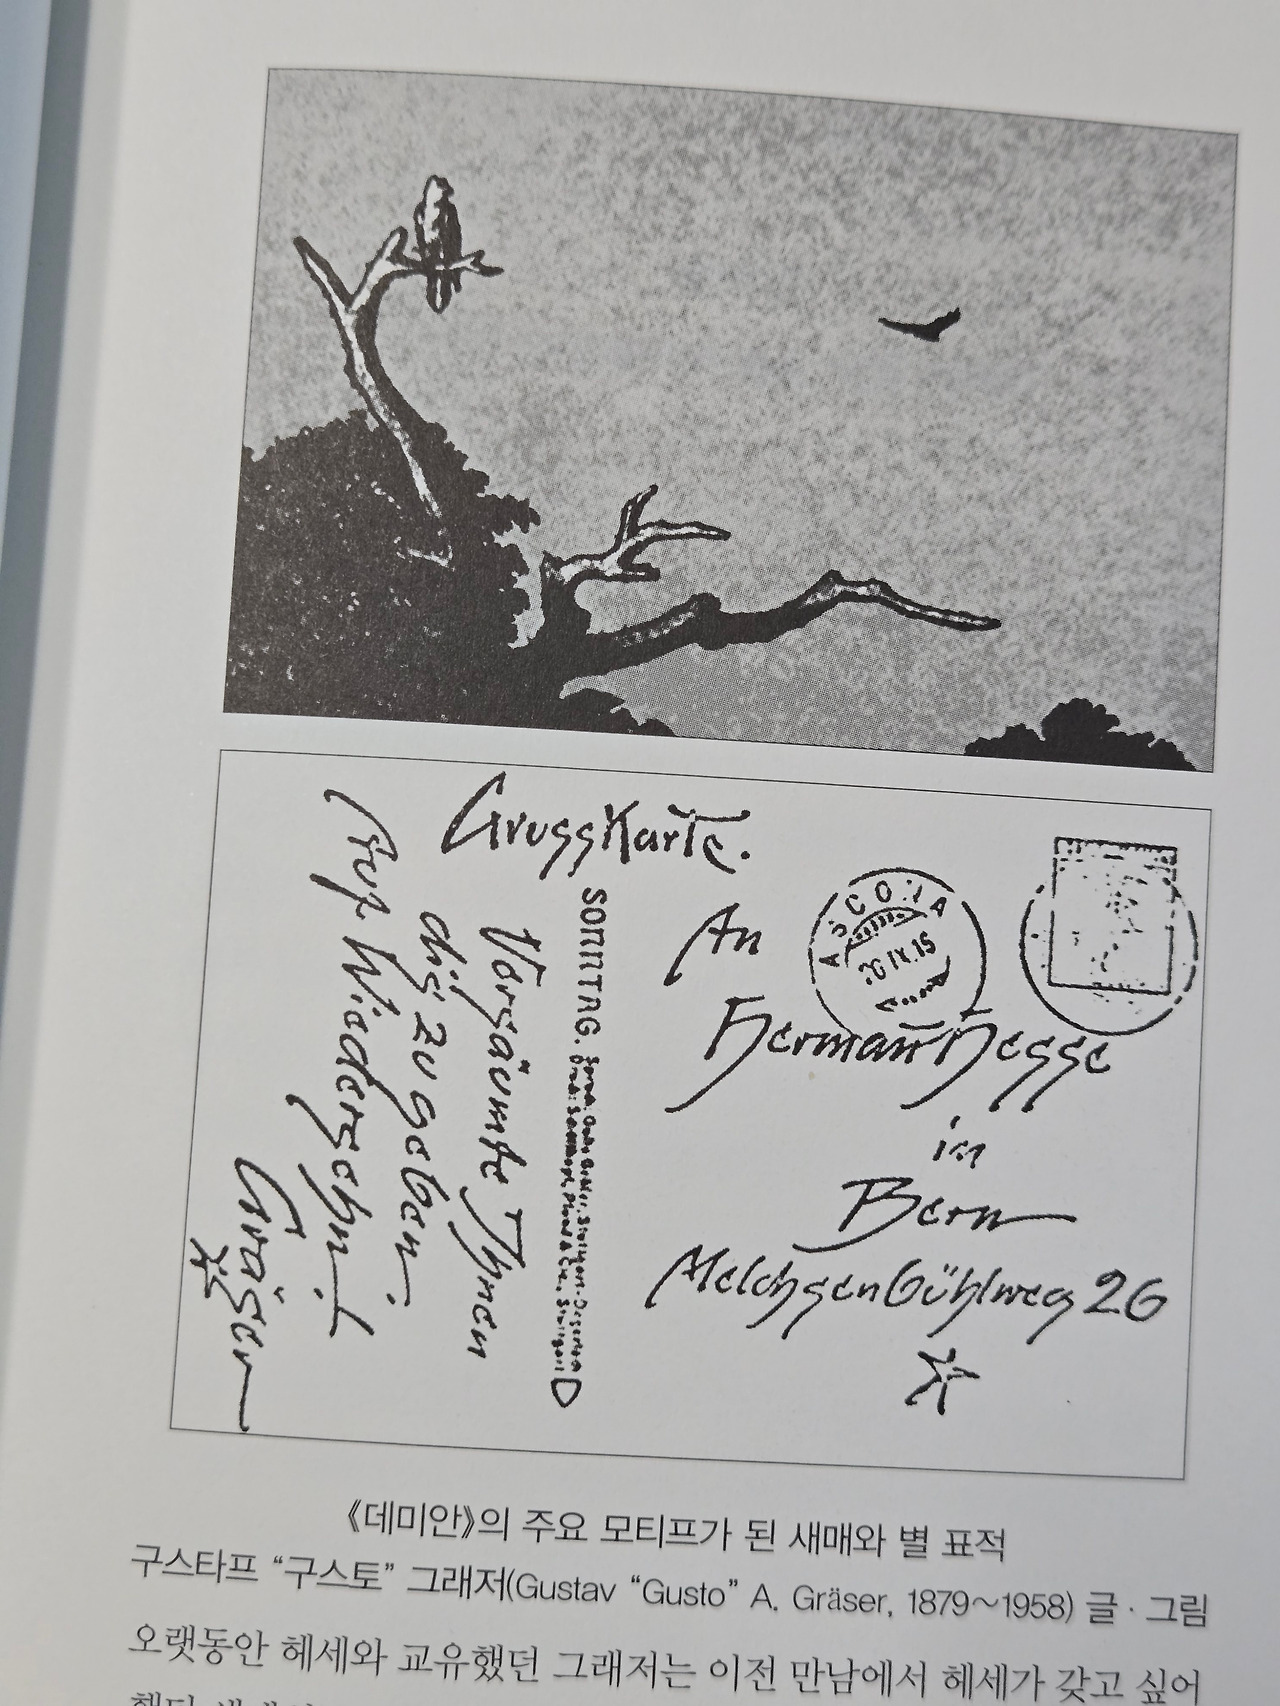 Grusskarte.
Versäumte Ihnen
dis zu geben.
Auf Wiedersehn!
Gräser
SONNTAG.
An
ASCONA
20 IX.15
Hermañ Hesse
in
Bern
Melchsenbühlweg 26
《데미안》의 주요 모티프가 된 새매와 별 표적
구스타프 “구스토” 그래저(Gustav “Gusto” A. Gräser, 1879~1958) 글 · 그림
오랫동안 헤세와 교유했던 그래저는 이전 만남에서 헤세가 갖고 싶어